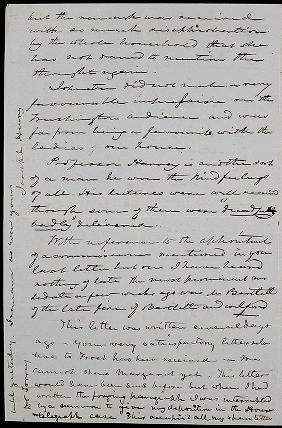 but the remark was received
with so much disapprobation
by the whole household that she
has not dared to mention the
thought again.
Johnston did not make a very
favourable impression on the
Washington audience and was
far from being a favourite with the
ladies of our house.
Professor Henry is another sort
of a man he won the kind feelings
of all. His lectures were well received
though some of them were
badly delivered.
With reference to the appointment
of a commissioner mentioned in your
last letter but one I have heard
nothing of late the most prominent can
didate a few weeks ago was Mr Bartlett
of the late firm of Bartlett and Welford
This letter was written several days
ago. Your very satisfactory letter rela
tive to Frost has been received
cannot show Margaret yet. This letter
would have been sent before but when I had
written the foregoing paragraph I was interrupted
by a summons to give my deposition in the House
telegraph case. This occupied all my spare time
until yesterday. I remain as ever yours
Joseph Henry
Dr Torrey